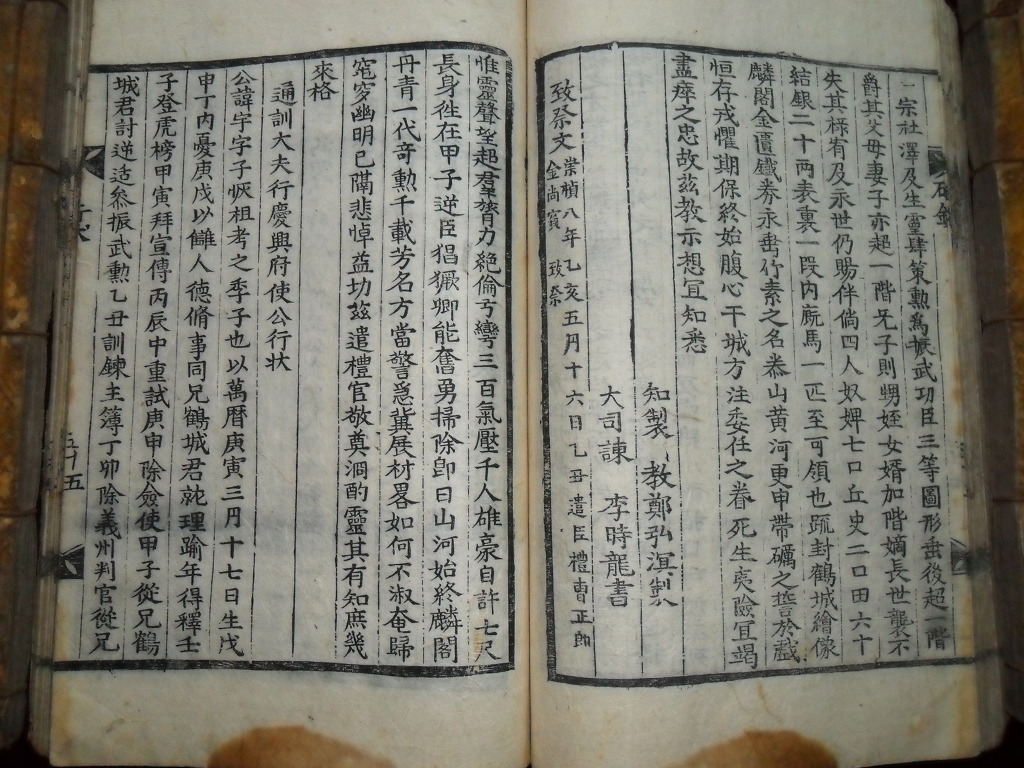 宗社澤及生靈肆策勲爲振武功臣三等圖形垂後超一階
爵其父母妻子亦超一階旡子則甥姪女婿加階嫡長世襲不
失其祿宥及永世仍賜伴倘四人奴婢七口丘史二口田六十
結銀二十兩表裏一段内廐馬一匹至可領也疏封鶴城繪像
麟閣金匱鐵券永垂竹素之名泰山黄河更申帶礪之誓於戲
恒存戎懼期保終始腹心干城方注委任之眷死生夷險宜竭
盡瘁之忠故玆教示想宜知悉
知製教鄭弘溟製
大司諫 李時龍書
致祭文 崇禎八年乙亥五月十六日乙丑遣臣禮曹正郎
金尚賓 致祭
惟靈聲望超羣膂力絶倫弓彎三百氣壓千人雄豪自許七尺
長身徃在甲子逆臣猖獗卿能奮勇掃除卽日山河始終麟閣
丹青一代奇勲千載芳名方當警急冀展材畧如何不淑奄歸
窀穸幽明已隔悲悼益切玆遣禮官敬奠泂酌靈其有知庶幾
來格
通訓大夫行慶興府使公行状
公諱宇字子恢祖考之季子也以萬暦庚寅三月十七日生戊
申丁内憂庚戌以讎人德脩事同兄鶴城君就理踰年得釋壬
子登虎榜甲寅拜宣傳丙辰中重試庚申除僉使甲子從兄鶴
城君討逆造參振武勲乙丑訓鍊主簿丁卯除義州判官從兄
五十五